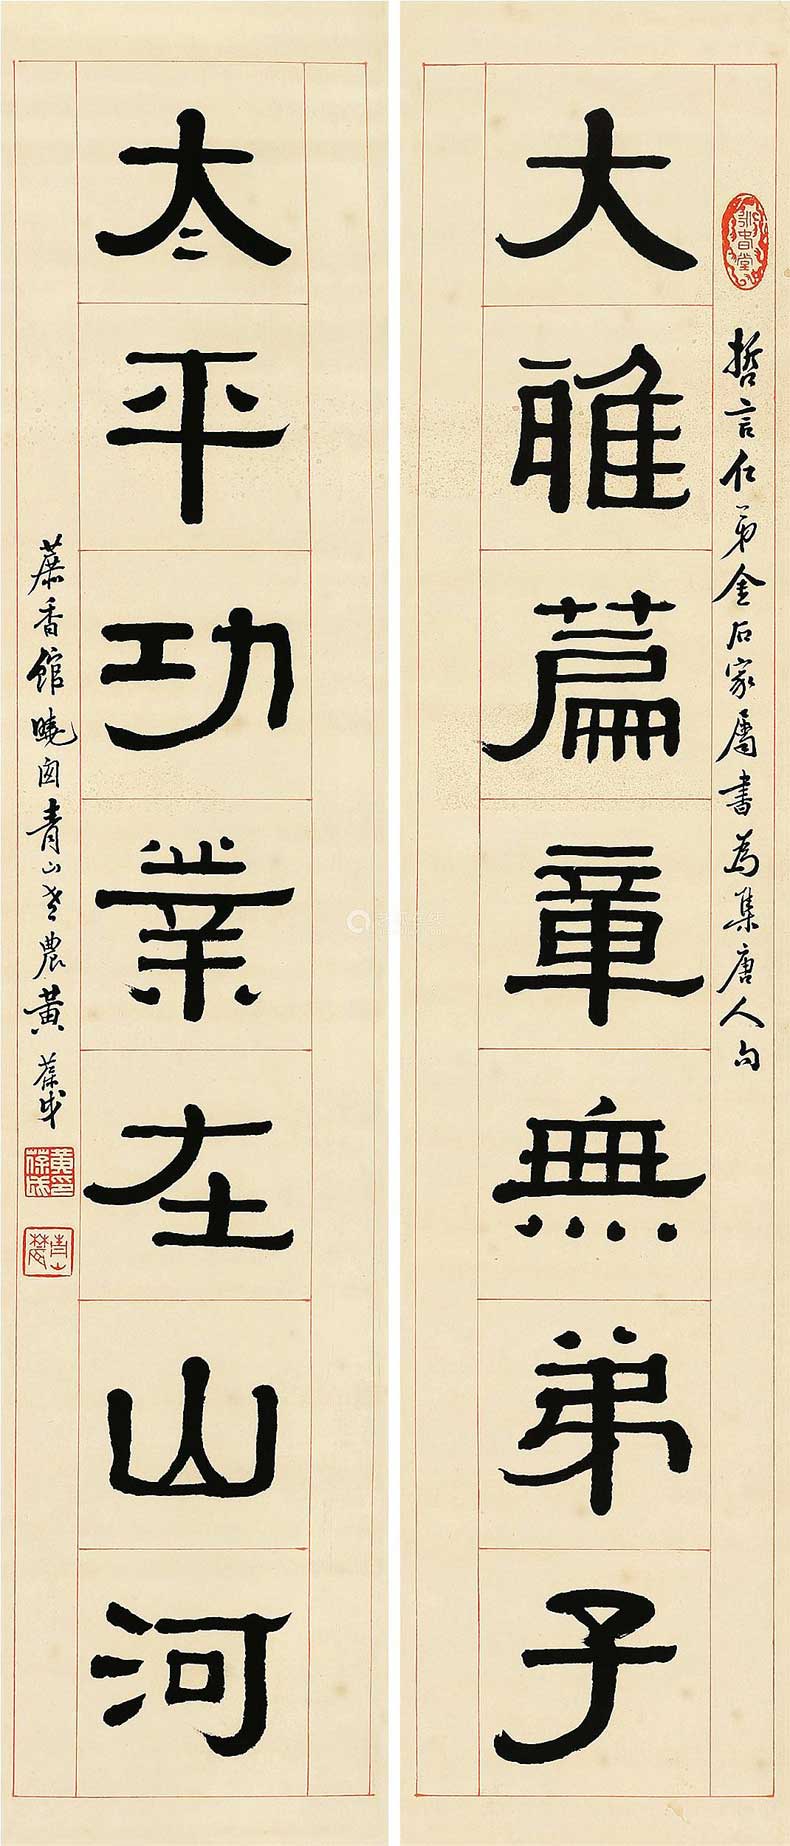 大雅篇章無弟子
哲言仁弟金石家屬書為集唐人句
太平功業在山河
蘼香館曉窗青山老農黃葆戉
黃葆戉印
青山農